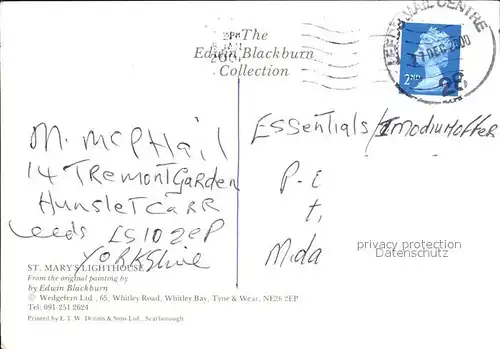 The
Edwin Blackburn
Collection
LEEDS MAIL CENTRE
27 DEC 2000
2ND
28
M. McPHail
14 TREMONT GARDEN
HunsLET CARR
Leeds LS10 2EP
YORKShire
ESSentials/ImodiumOffer
P-E
t,
Mda
privacy protection
Datenschutz
ST. MARY'S LIGHTHOUSE
From the original painting by
by Edwin Blackburn
© Wedgefern Ltd., 65, Whitley Road, Whitley Bay, Tyne & Wear, NE26 2EP
Tel: 091-251 2624
Printed by E. T. W. Dennis & Sons Ltd., Scarborough